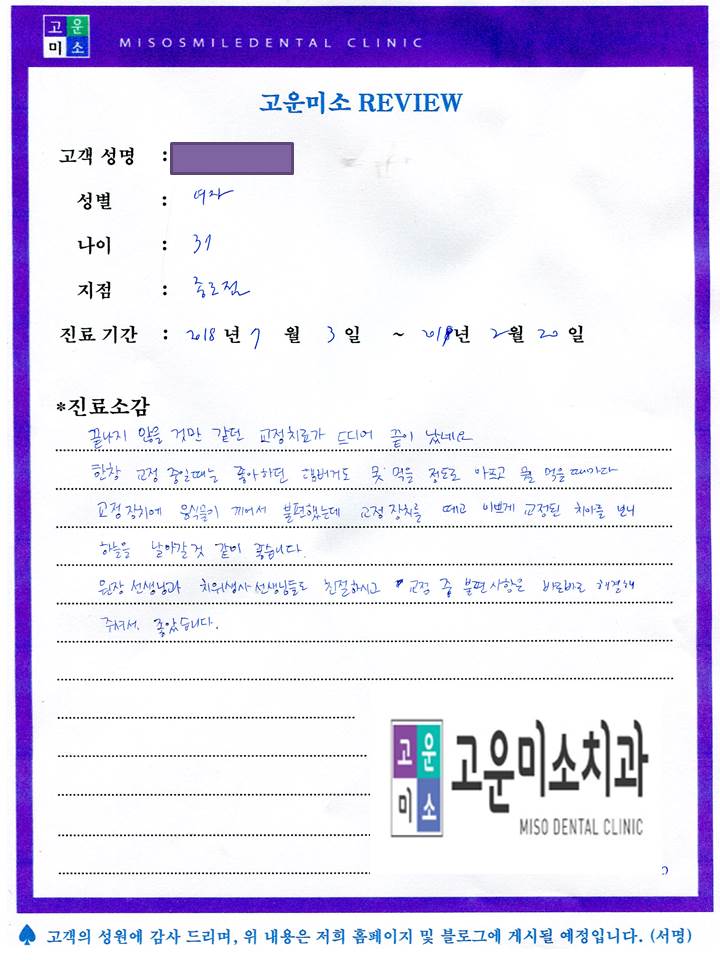 고운
미소
MISOSMILEDENTAL CLINIC
고운미소 REVIEW
고객 성명 :
성별 : 여자
나이 : 31
지점 : 종로점
진료 기간 : 2018 년 7 월 3 일 ~ 년 2월 20 일
*진료소감
끝나지 않을 것만 같던 교정치료가 드디어 끝이 났네요
한창 교정 중일때는 좋아하던 햄버거도 못 먹을 정도로 아프고 뭘 먹을때마다
교정장치에 음식물이 끼어서 불편했는데 교정 장치를 떼고 이쁘게 교정된 치아를 보니
하늘을 날아갈것 같이 좋습니다.
원장 선생님과 치위생사선생님들도 친절하시고 교정 중 불편사항은 바로바로 해결해
주셔서 좋았습니다.
고운
미소
고운미소치과
MISO DENTAL CLINIC
♠ 고객의 성원에 감사 드리며, 위 내용은 저희 홈페이지 및 블로그에 게시될 예정입니다. (서명)